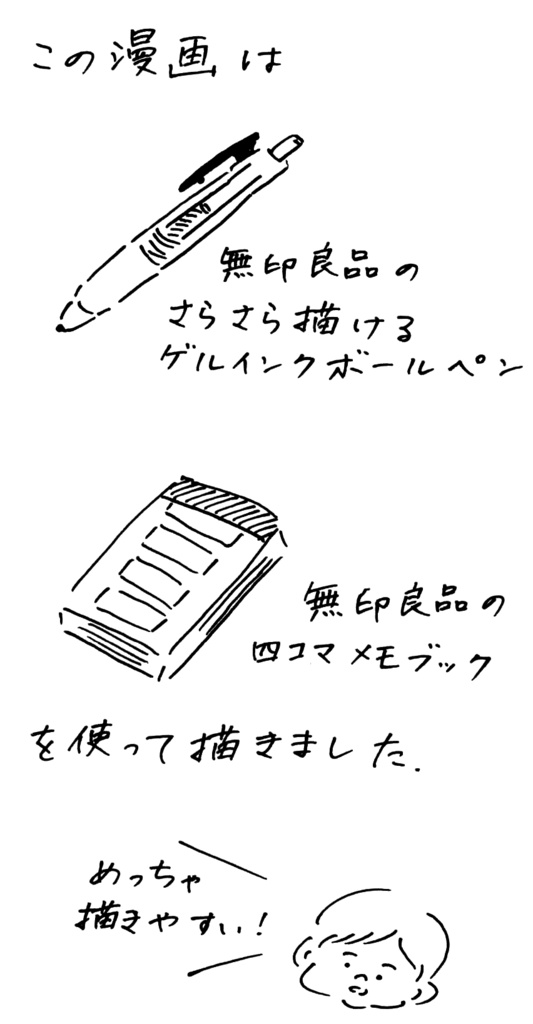 この漫画は
無印良品の
さらさら描ける
ゲルインクボールペン
無印良品の
四コマメモブック
を使って描きました.
めっちゃ
描きやすい!